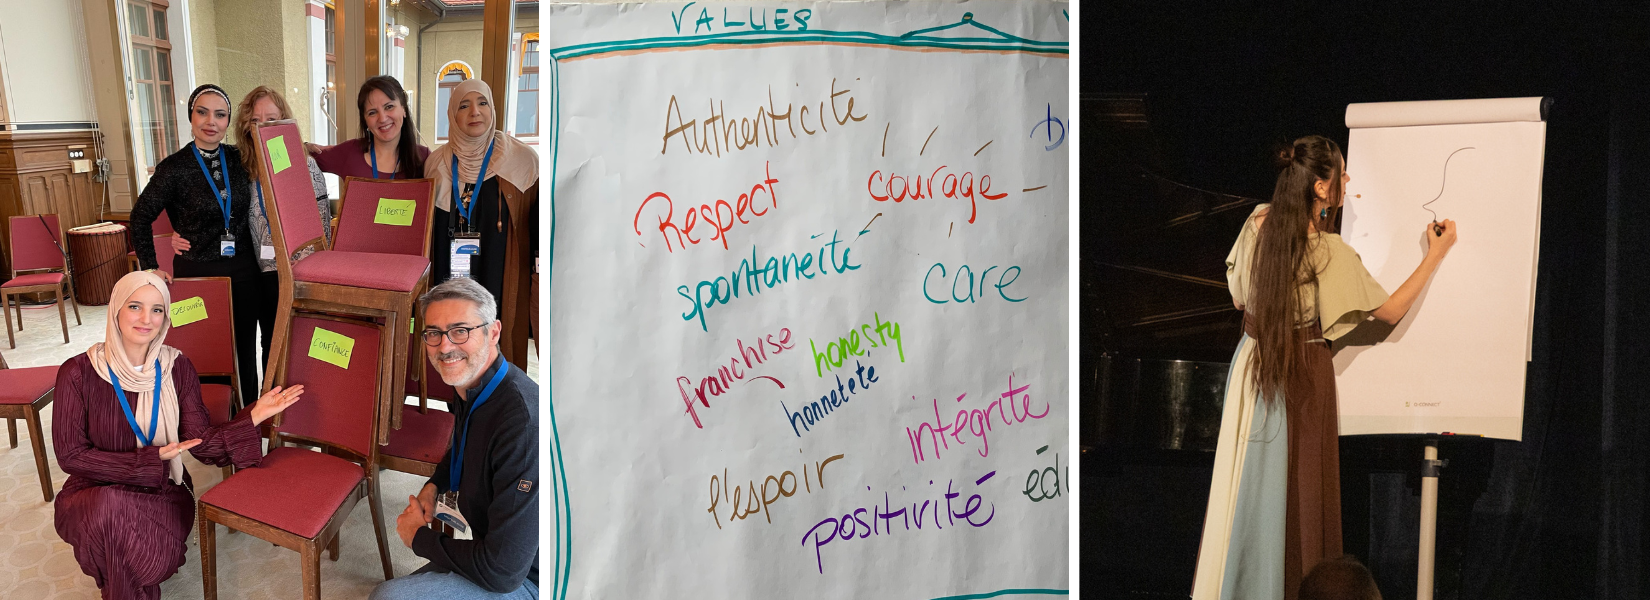 LIBERTÉ
DÉCOUVRIR
CONFIANCE
VALUES
Authenticité
Respect
couragé
spontanéité
care
franchise
honesty
honnêteté
intégrité
l'espoir
positivité
édu